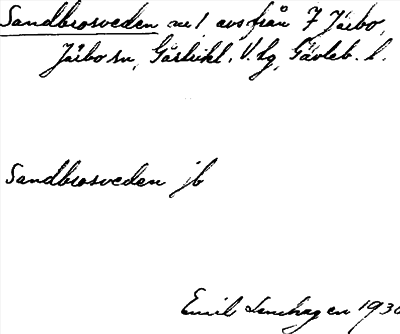 Sandbrosveden nr 1 avs från 7 Järbo,
Järbo sn, Gästrikl. V. tg, Gävleb. l.
Sandbrosveden jb
Emil Lenhagen 1930